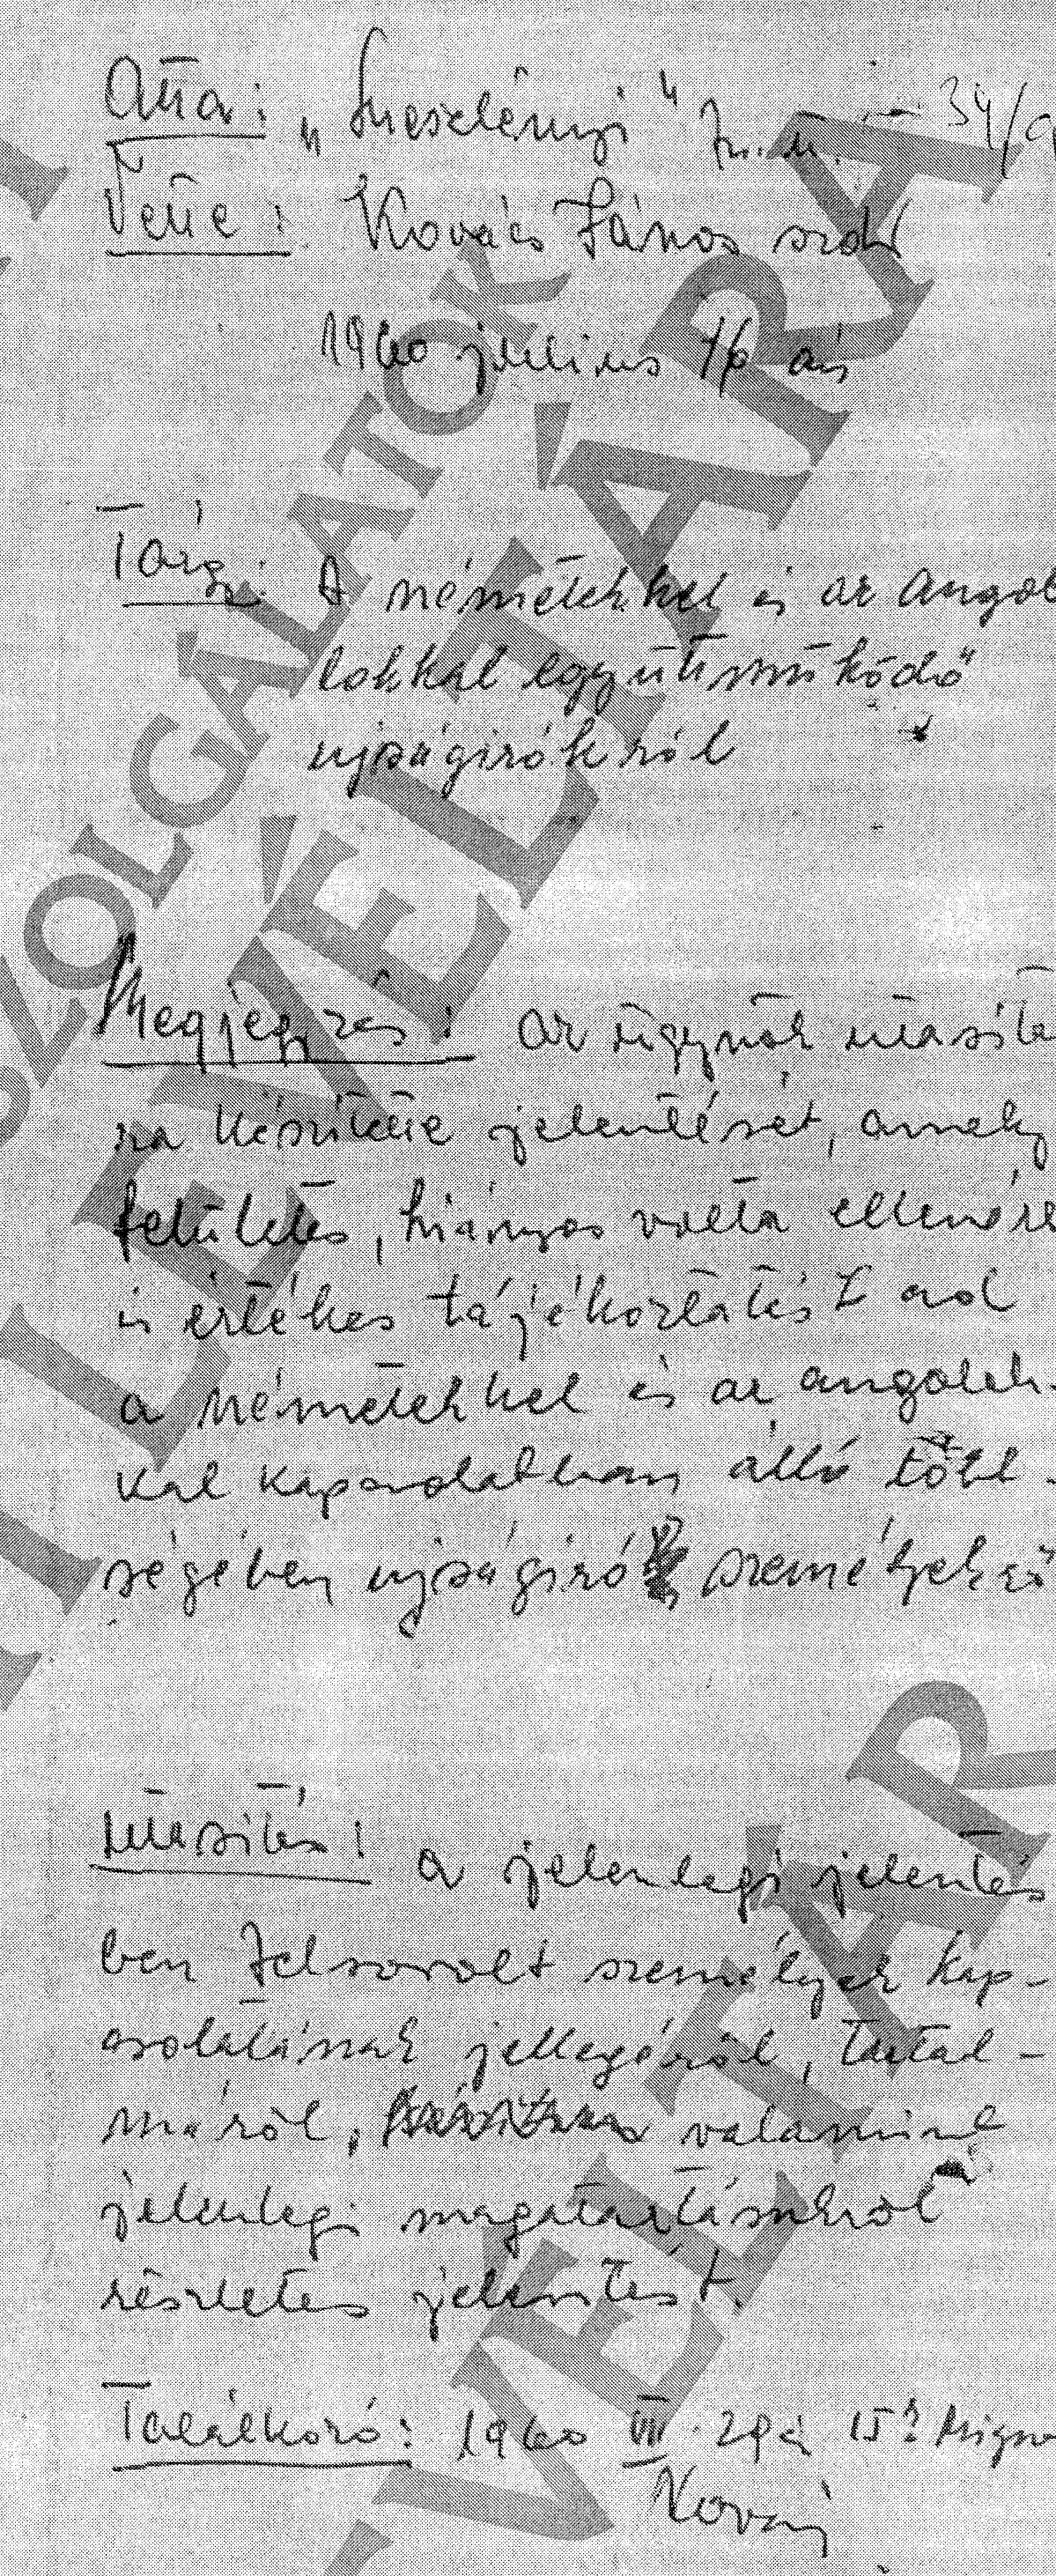 Atta: „Meszlényi" fn. ü. — 34/9
Vette: Kovács János szds
1960 julius 16 án
Tárgy: A németekkel és az angol
lokkal együttmüködő
ujságirókról
Megjegyzés: az ügynök utasitá
ra készitette jelentését, amely
felületes, hiányos volta ellenére
is értékes tájékoztatást ad
a németekkel és az angolok-
kal kapcsolatban álló több-
ségében ujságiró személyekrő
Utasitás: a jelenlegi jelentés
ben felsorolt személyek kap-
csolatának jellegéről, tartal-
máról, valamint
jelenlegi magatartásukról
részletes jelentést.
Találkozó: 1960 VII. 29 én 15 h
Kovács
SZOLGÁLATOK
LEVÉLTÁRA